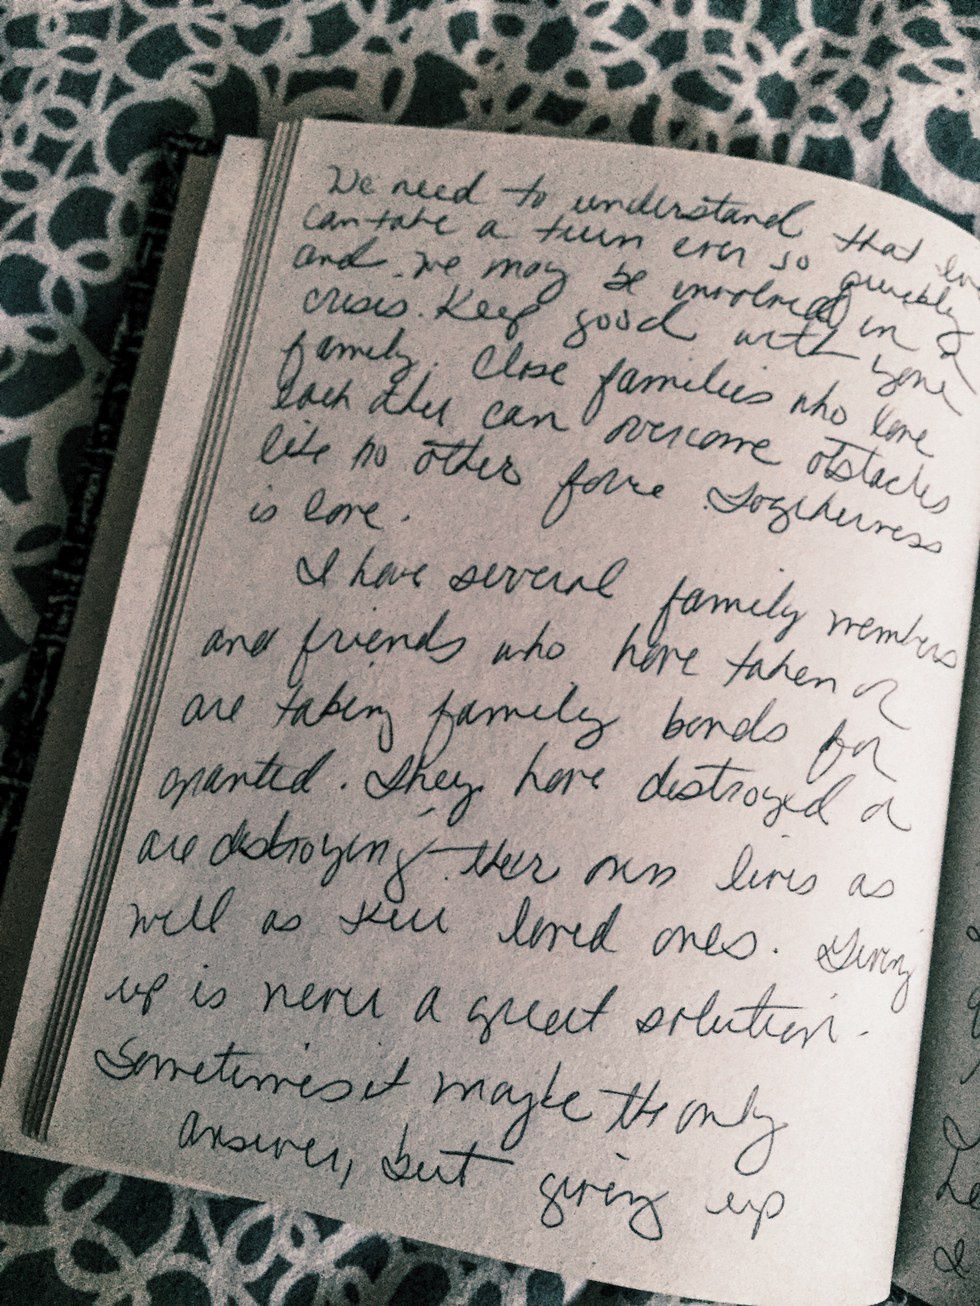 We need to understand that
can take a turn ever so quickly
and we may be involved in a
crisis. Keep good with your
family. Close families who love
each other can overcome obstacles
like no other force. Togetherness
is love.
I have several family members
and friends who have taken or
are taking family bonds for
granted. They have destroyed or
are destroying their own lives as
well as their loved ones. Giving
up is never a great solution.
Sometimes it maybe the only
answer, but giving up